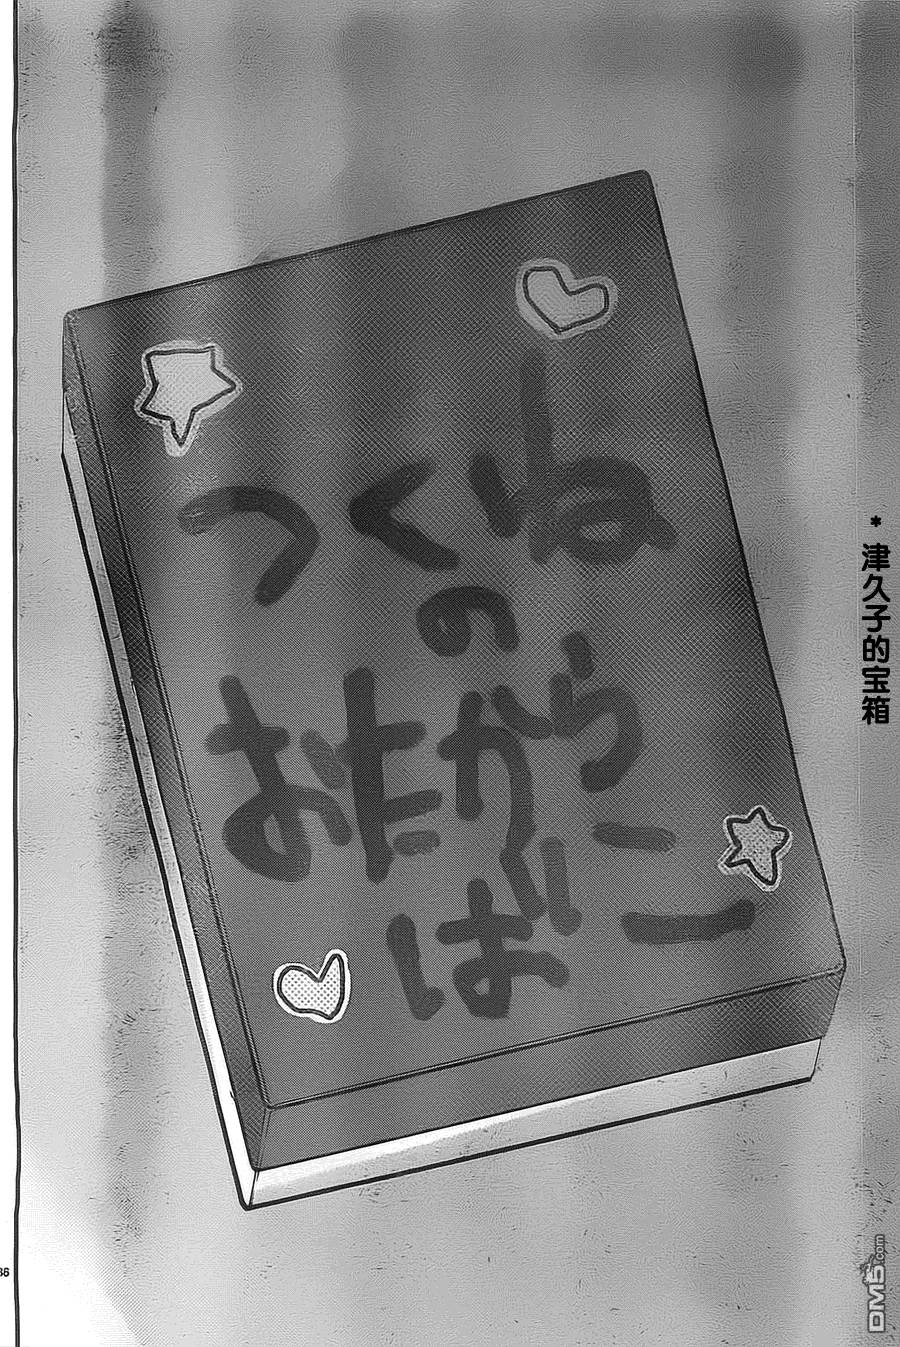 つくね
の
おたから
ばこ
* 津久子的宝箱
36
DM5.com